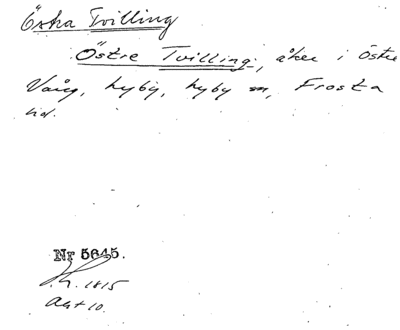 Östra Tvilling
Östre Tvilling, åker i östre
Vång, Hyby, Hyby sn, Frosta
hd.
Nr 5645.
1815
Akt 10.